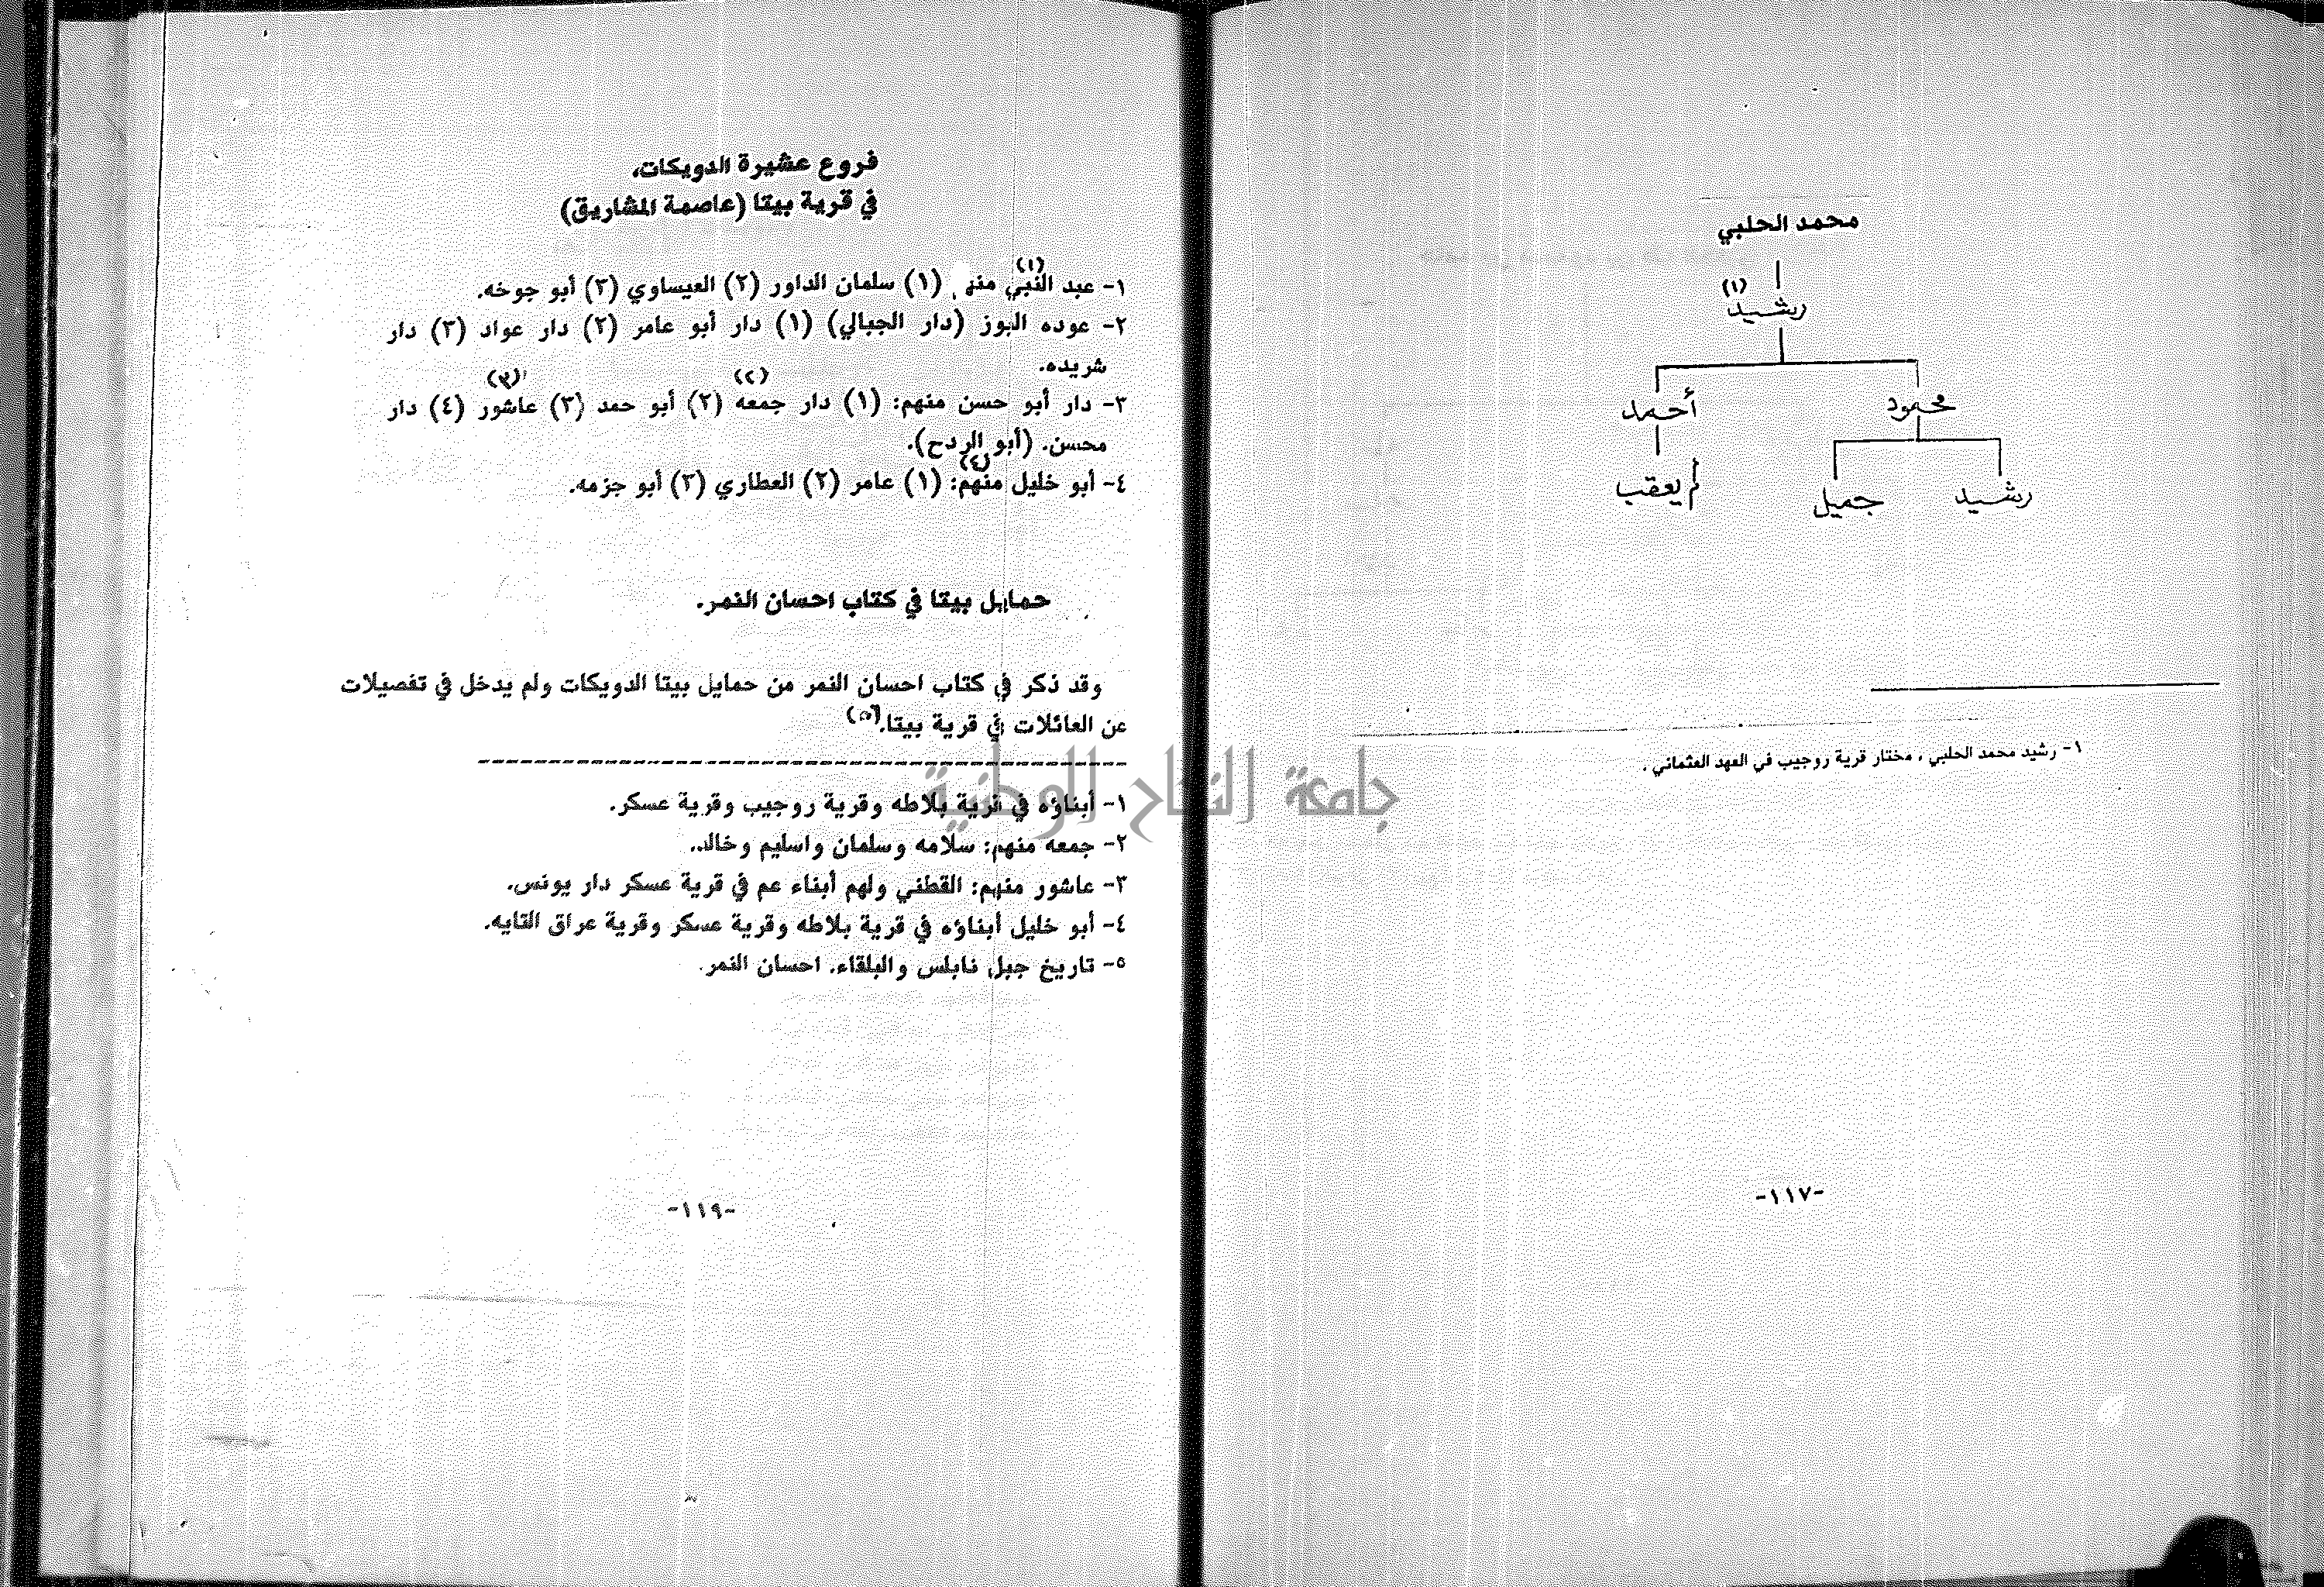 محمد الحلبي
رشيد (١)
محمود
أحمد
رشيد
جميل
لم يعقب
١- رشيد محمد الحلبي ، مختار قرية روجيب في العهد العثماني .
-١١٧-
فروع عشيرة الدويكات،
في قرية بيتا (عاصمة المشاريق)
١- عبد النبي (١) (١) سلمان الداور (٢) العيساوي (٣) أبو جوخه.
٢- عوده البوز (دار الجبالي) (١) دار أبو عامر (٢) دار عواد (٣) دار
شريده.
٣- دار أبو حسن منهم: (١) دار جمعه (٢) (٢) أبو حمد (٣) عاشور (٣) (٤) دار
محسن. (أبو الردح).
٤- أبو خليل منهم (٤): (١) عامر (٢) العطاري (٣) أبو جزمه.
حمايل بيتا في كتاب احسان النمر.
وقد ذكر في كتاب احسان النمر من حمايل بيتا الدويكات ولم يدخل في تفصيلات
عن العائلات في قرية بيتا.(٥)
١- أبناؤه في قرية بلاطه وقرية روجيب وقرية عسكر.
٢- جمعه منهم: سلامه وسلمان واسليم وخالد.
٣- عاشور منهم: القطني ولهم أبناء عم في قرية عسكر دار يونس.
٤- أبو خليل أبناؤه في قرية بلاطه وقرية عسكر وقرية عراق التايه.
٥- تاريخ جبل نابلس والبلقاء. احسان النمر.
-١١٩-
جامعة النجاح الوطنية